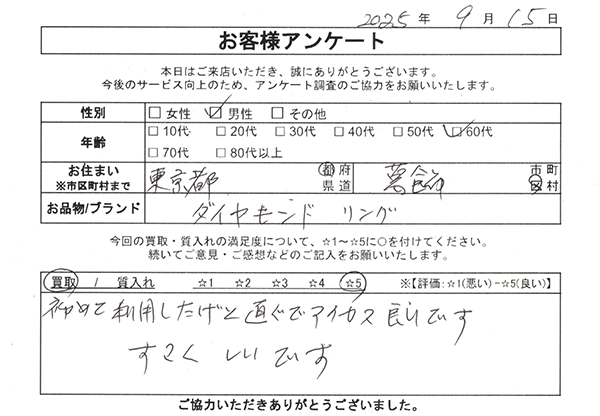 2025 年 9 月 15 日
お客様アンケート
本日はご来店いただき、誠にありがとうございます。
今後のサービス向上のため、アンケート調査のご協力をお願いいたします。
性別 □女性 ☑男性 □その他
年齢 □10代 □20代 □30代 □40代 □50代 ☑60代
□70代 □80代以上
お住まい
※市区町村まで 東京都 都府県道 葛飾 市町区村
お品物/ブランド ダイヤモンド リング
今回の買取・質入れの満足度について、☆1～☆5に○を付けてください。
続いてご意見・ご感想などのご記入をお願いいたします。
買取 / 質入れ ☆1 ☆2 ☆3 ☆4 ☆5 ※【評価:☆1(悪い)－☆5(良い)】
初めて利用したけど直ぐで 良いです
すごく いいです
ご協力いただきありがとうございました。